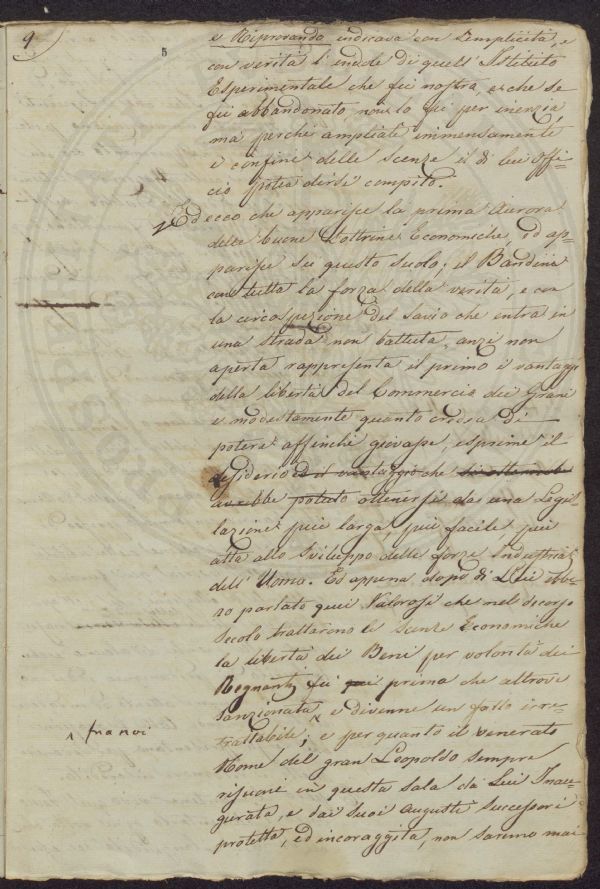 9
5
e Riprovando indicava con semplicità, e
con verità l'indole di quell'Istituto
Esperimentale che fù nostra, e che se
fù abbandonato non lo fù per inerzia,
ma perche ampliate immensamente
i confini delle scenze il di lui Offi=
cio potea dirsi compito.
Ed ecco che apparisce la prima Aurora
delle buone Dottrine Economiche, ed ap=
parisce su questo suolo; il Bandini
con tutta la forza della verità, e con
la circospezione del savio che entra in
una strada non battuta, anzi non
aperta rappresenta il primo i vantaggi
della libertà del Commercio dei Grani
e modestamente quanto credea di
potere affinchè giovasse, esprime il
desiderio ed il vantaggio che si otterrebbe
avrebbe potuto ottenersi da una Legis=
lazione più larga, più facile, più
atta allo sviluppo delle forze industriali
dell'Uomo. Ed appena dopo di Lui ebbe=
ro parlato quei Valorosi che nel decorso
Secolo trattarono le Scenze Economiche
la libertà dei Beni per volontà dei
Regnanti fù quì prima che altrove
sanzionata e divenne un fatto irre=
trattabile; e per quanto il venerato
Nome del gran Leopoldo sempre
risuoni in questa sala da Lui Inau=
gurata, e dai suoi Augusti successori
protetta, ed incoraggita, non saremo mai
fra noi